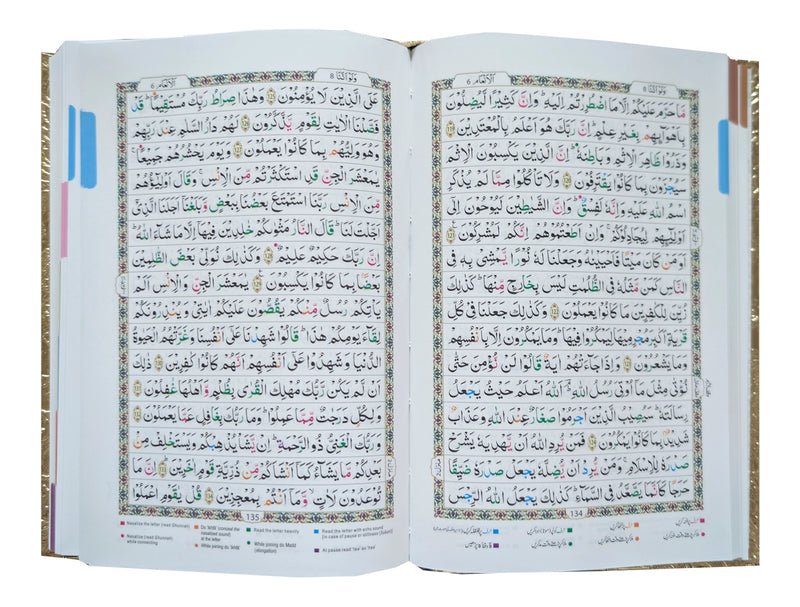 ولو اننا ٨
الانعام ٦
مَا حَرَّمَ عَلَيْكُمْ اِلَّا مَا اضْطُرِرْتُمْ اِلَيْهِ ؕ وَاِنَّ كَثِيْرًا لَّيُضِلُّوْنَ
بِاَهْوَآئِهِمْ بِغَيْرِ عِلْمٍ ؕ اِنَّ رَبَّكَ هُوَ اَعْلَمُ بِالْمُعْتَدِيْنَ ۝
وَذَرُوْا ظَاهِرَ الْاِثْمِ وَبَاطِنَهٗ ؕ اِنَّ الَّذِيْنَ يَكْسِبُوْنَ الْاِثْمَ
سَيُجْزَوْنَ بِمَا كَانُوْا يَقْتَرِفُوْنَ ۝ وَلَا تَاْكُلُوْا مِمَّا لَمْ يُذْكَرِ
اسْمُ اللّٰهِ عَلَيْهِ وَاِنَّهٗ لَفِسْقٌ ؕ وَاِنَّ الشَّيٰطِيْنَ لَيُوْحُوْنَ اِلٰٓى
اَوْلِيٰٓئِهِمْ لِيُجَادِلُوْكُمْ ۚ وَاِنْ اَطَعْتُمُوْهُمْ اِنَّكُمْ لَمُشْرِكُوْنَ ۝
اَوَمَنْ كَانَ مَيْتًا فَاَحْيَيْنٰهُ وَجَعَلْنَا لَهٗ نُوْرًا يَّمْشِيْ بِهٖ فِى
النَّاسِ كَمَنْ مَّثَلُهٗ فِى الظُّلُمٰتِ لَيْسَ بِخَارِجٍ مِّنْهَا ؕ كَذٰلِكَ
زُيِّنَ لِلْكٰفِرِيْنَ مَا كَانُوْا يَعْمَلُوْنَ ۝ وَكَذٰلِكَ جَعَلْنَا فِيْ كُلِّ
قَرْيَةٍ اَكٰبِرَ مُجْرِمِيْهَا لِيَمْكُرُوْا فِيْهَا ؕ وَمَا يَمْكُرُوْنَ اِلَّا بِاَنْفُسِهِمْ
وَمَا يَشْعُرُوْنَ ۝ وَاِذَا جَآءَتْهُمْ اٰيَةٌ قَالُوْا لَنْ نُّؤْمِنَ حَتّٰى
نُؤْتٰى مِثْلَ مَآ اُوْتِيَ رُسُلُ اللّٰهِ ؔۘ اَللّٰهُ اَعْلَمُ حَيْثُ يَجْعَلُ
رِسَالَتَهٗ ؕ سَيُصِيْبُ الَّذِيْنَ اَجْرَمُوْا صَغَارٌ عِنْدَ اللّٰهِ وَعَذَابٌ
شَدِيْدٌۢ بِمَا كَانُوْا يَمْكُرُوْنَ ۝ فَمَنْ يُّرِدِ اللّٰهُ اَنْ يَّهْدِيَهٗ يَشْرَحْ
صَدْرَهٗ لِلْاِسْلَامِ ۚ وَمَنْ يُّرِدْ اَنْ يُّضِلَّهٗ يَجْعَلْ صَدْرَهٗ ضَيِّقًا
حَرَجًا كَاَنَّمَا يَصَّعَّدُ فِى السَّمَآءِ ؕ كَذٰلِكَ يَجْعَلُ اللّٰهُ الرِّجْسَ
134
ولو اننا ٨
الانعام ٦
عَلَى الَّذِيْنَ لَا يُؤْمِنُوْنَ ۝ وَهٰذَا صِرَاطُ رَبِّكَ مُسْتَقِيْمًا ؕ قَدْ
فَصَّلْنَا الْاٰيٰتِ لِقَوْمٍ يَّذَّكَّرُوْنَ ۝ لَهُمْ دَارُ السَّلٰمِ عِنْدَ رَبِّهِمْ
وَهُوَ وَلِيُّهُمْ بِمَا كَانُوْا يَعْمَلُوْنَ ۝ وَيَوْمَ يَحْشُرُهُمْ جَمِيْعًا ۚ
يٰمَعْشَرَ الْجِنِّ قَدِ اسْتَكْثَرْتُمْ مِّنَ الْاِنْسِ ۚ وَقَالَ اَوْلِيٰٓؤُهُمْ
مِّنَ الْاِنْسِ رَبَّنَا اسْتَمْتَعَ بَعْضُنَا بِبَعْضٍ وَّبَلَغْنَآ اَجَلَنَا الَّذِيْٓ
اَجَّلْتَ لَنَا ؕ قَالَ النَّارُ مَثْوٰىكُمْ خٰلِدِيْنَ فِيْهَآ اِلَّا مَا شَآءَ اللّٰهُ ؕ
اِنَّ رَبَّكَ حَكِيْمٌ عَلِيْمٌ ۝ وَكَذٰلِكَ نُوَلِّيْ بَعْضَ الظّٰلِمِيْنَ
بَعْضًۢا بِمَا كَانُوْا يَكْسِبُوْنَ ۝ يٰمَعْشَرَ الْجِنِّ وَالْاِنْسِ اَلَمْ
يَاْتِكُمْ رُسُلٌ مِّنْكُمْ يَقُصُّوْنَ عَلَيْكُمْ اٰيٰتِيْ وَيُنْذِرُوْنَكُمْ
لِقَآءَ يَوْمِكُمْ هٰذَا ؕ قَالُوْا شَهِدْنَا عَلٰٓى اَنْفُسِنَا وَغَرَّتْهُمُ الْحَيٰوةُ
الدُّنْيَا وَشَهِدُوْا عَلٰٓى اَنْفُسِهِمْ اَنَّهُمْ كَانُوْا كٰفِرِيْنَ ۝ ذٰلِكَ
اَنْ لَّمْ يَكُنْ رَّبُّكَ مُهْلِكَ الْقُرٰى بِظُلْمٍ وَّاَهْلُهَا غٰفِلُوْنَ ۝
وَلِكُلٍّ دَرَجٰتٌ مِّمَّا عَمِلُوْا ؕ وَمَا رَبُّكَ بِغَافِلٍ عَمَّا يَعْمَلُوْنَ ۝
وَرَبُّكَ الْغَنِيُّ ذُو الرَّحْمَةِ ؕ اِنْ يَّشَاْ يُذْهِبْكُمْ وَيَسْتَخْلِفْ مِنْۢ
بَعْدِكُمْ مَّا يَشَآءُ كَمَآ اَنْشَاَكُمْ مِّنْ ذُرِّيَّةِ قَوْمٍ اٰخَرِيْنَ ۝ اِنَّ مَا
تُوْعَدُوْنَ لَاٰتٍ ۙ وَّمَآ اَنْتُمْ بِمُعْجِزِيْنَ ۝ قُلْ يٰقَوْمِ اعْمَلُوْا
135
Nasalize the letter (read Ghunnah)
Nasalize (read Ghunnah) while connecting
Do 'Ikhfa' (conceal the nasalized sound) at the letter
While joining do 'Ikhfa'
Read the letter heavily
While joining do Madd (elongation)
Read the letter with echo sound (in case of pause or stillness (Sukoon)
At pause read 'Haa' as 'Haa'